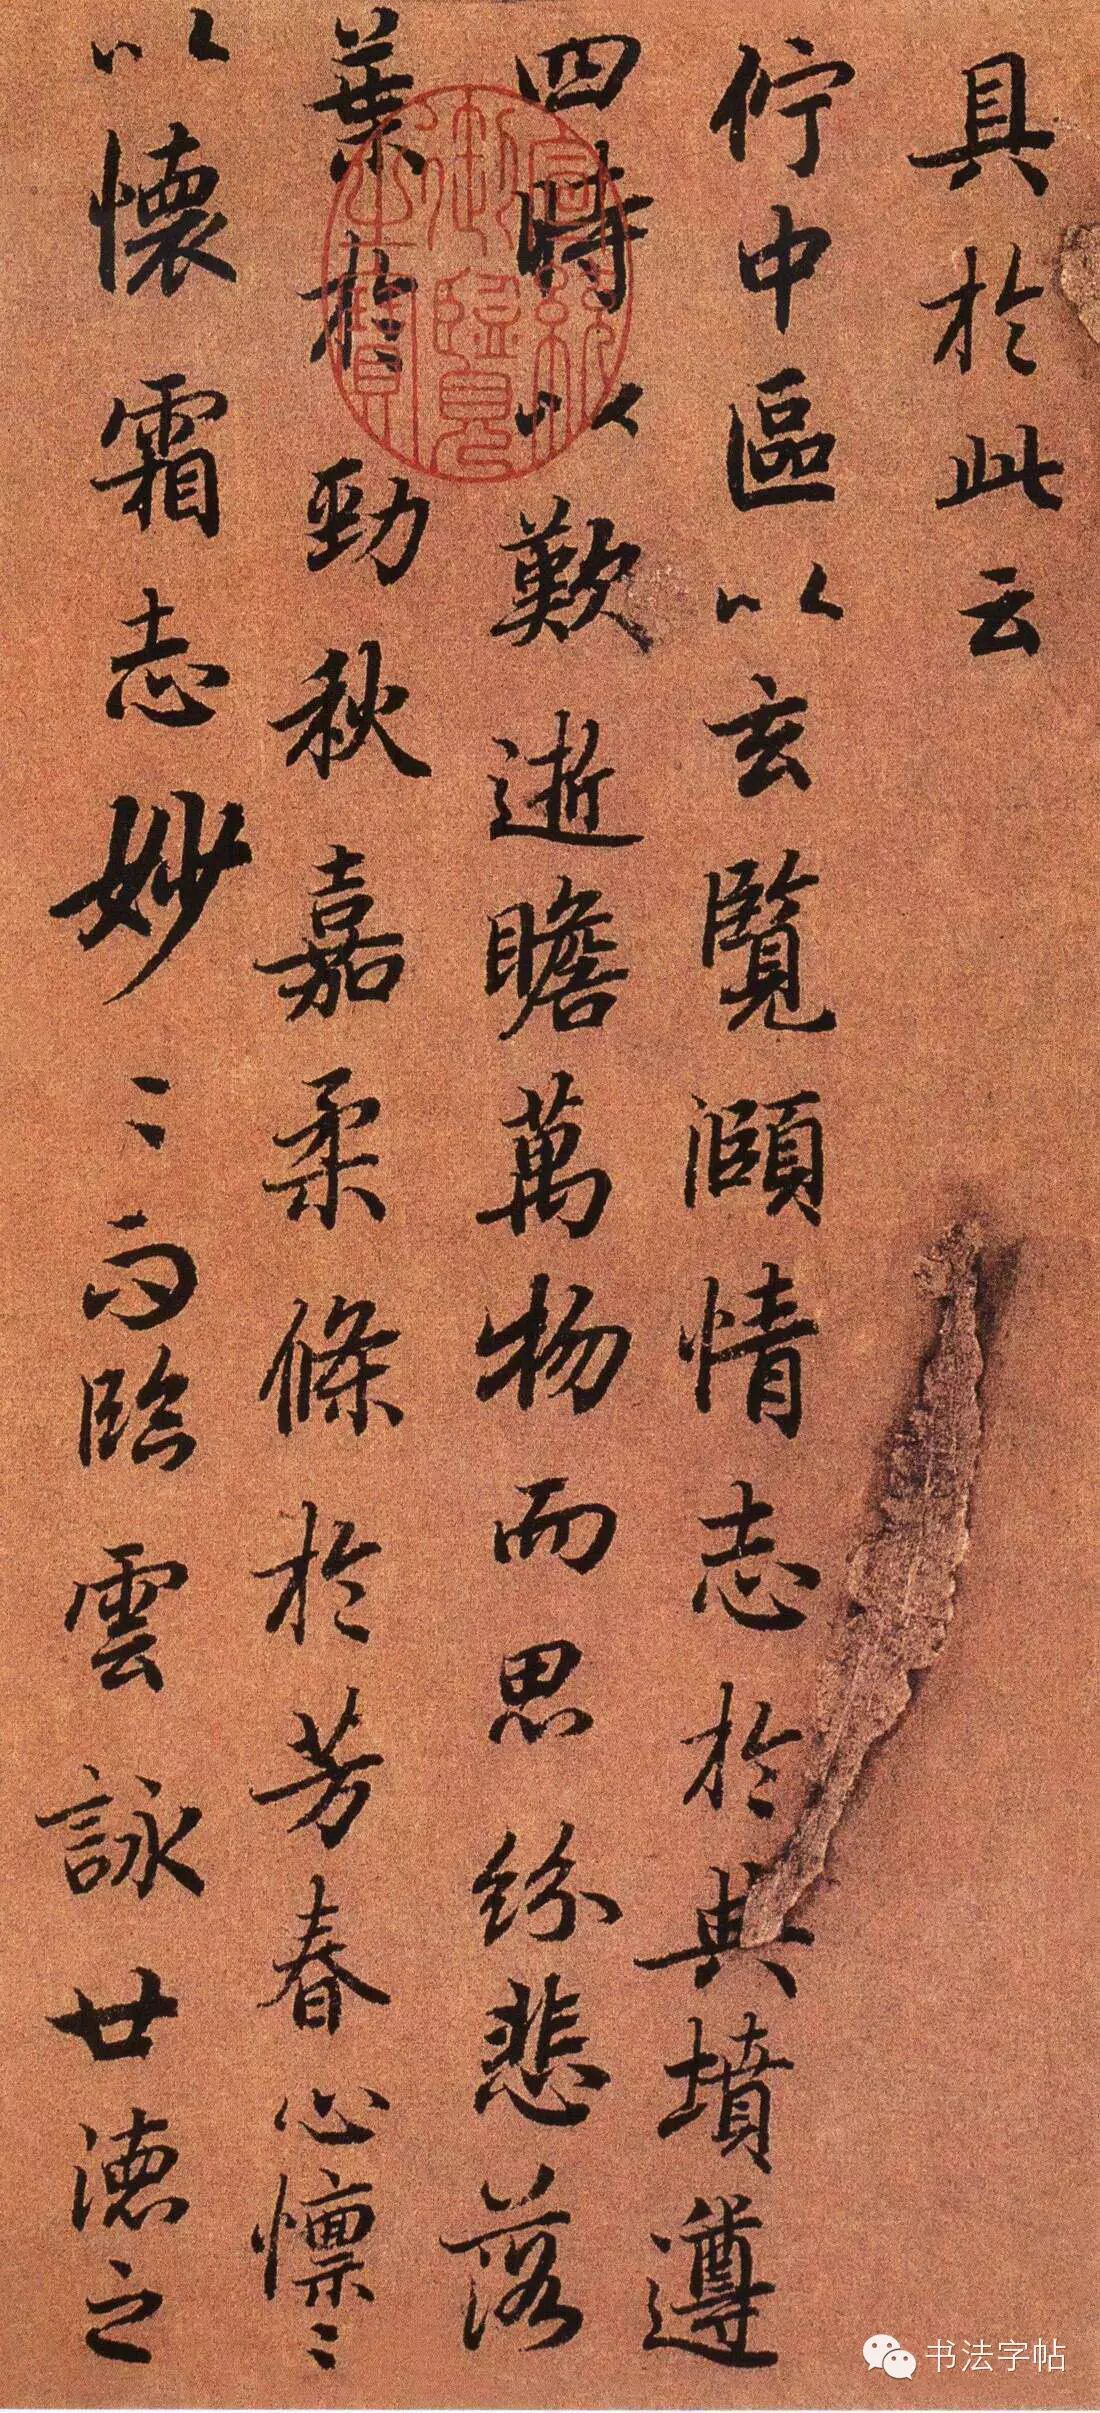 具於此云
佇中區以玄覽頤情志於典墳遵
四時以歎逝瞻萬物而思紛悲落
葉於勁秋嘉柔條於芳春心懍〻
以懷霜志妙〻而臨雲詠世德之
宣統御覽之寶
书法字帖